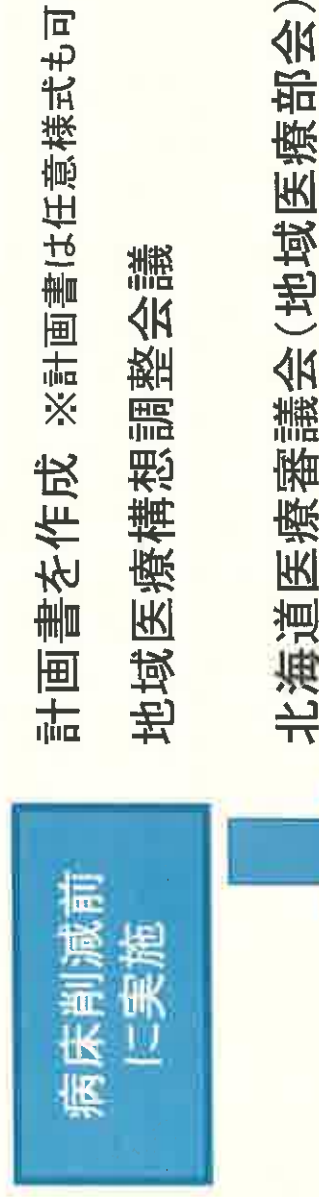 病床削減前
に実施
計画書を作成 ※計画書は任意様式も可
地域医療構想調整会議
北海道医療審議会(地域医療部会)